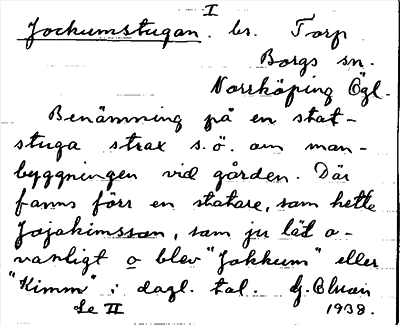 I
Jockumstugan. br. Torp
Borgs sn.
Norrköping Ögl.
Benämning på en stat-
stuga strax s.ö. om man-
byggningen vid gården. Där
fanns förr en statare, som hette
Jojakimsson, som ju lät o-
vanligt o blev "Jokkum" eller
"Kimm" i dagl. tal. G.
Se II 1938.